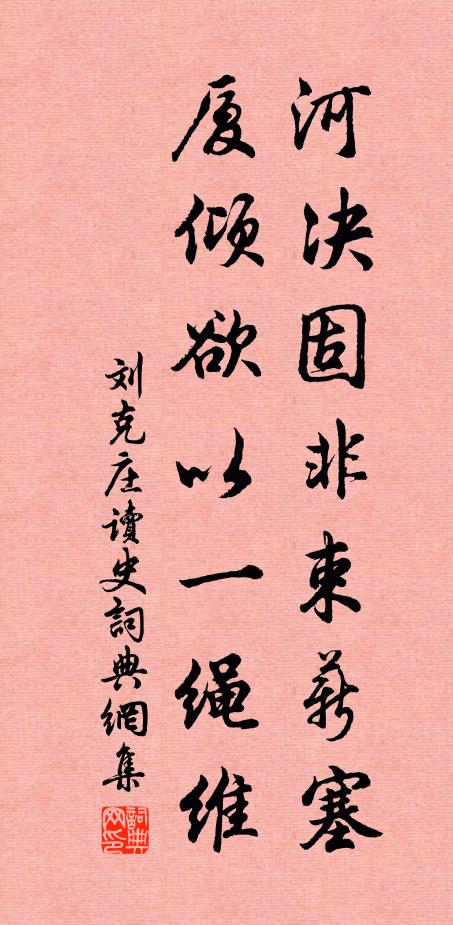 河决固非束薪塞
厦倾欲以一绳维
刘克庄读史詞典網集
詞典网印